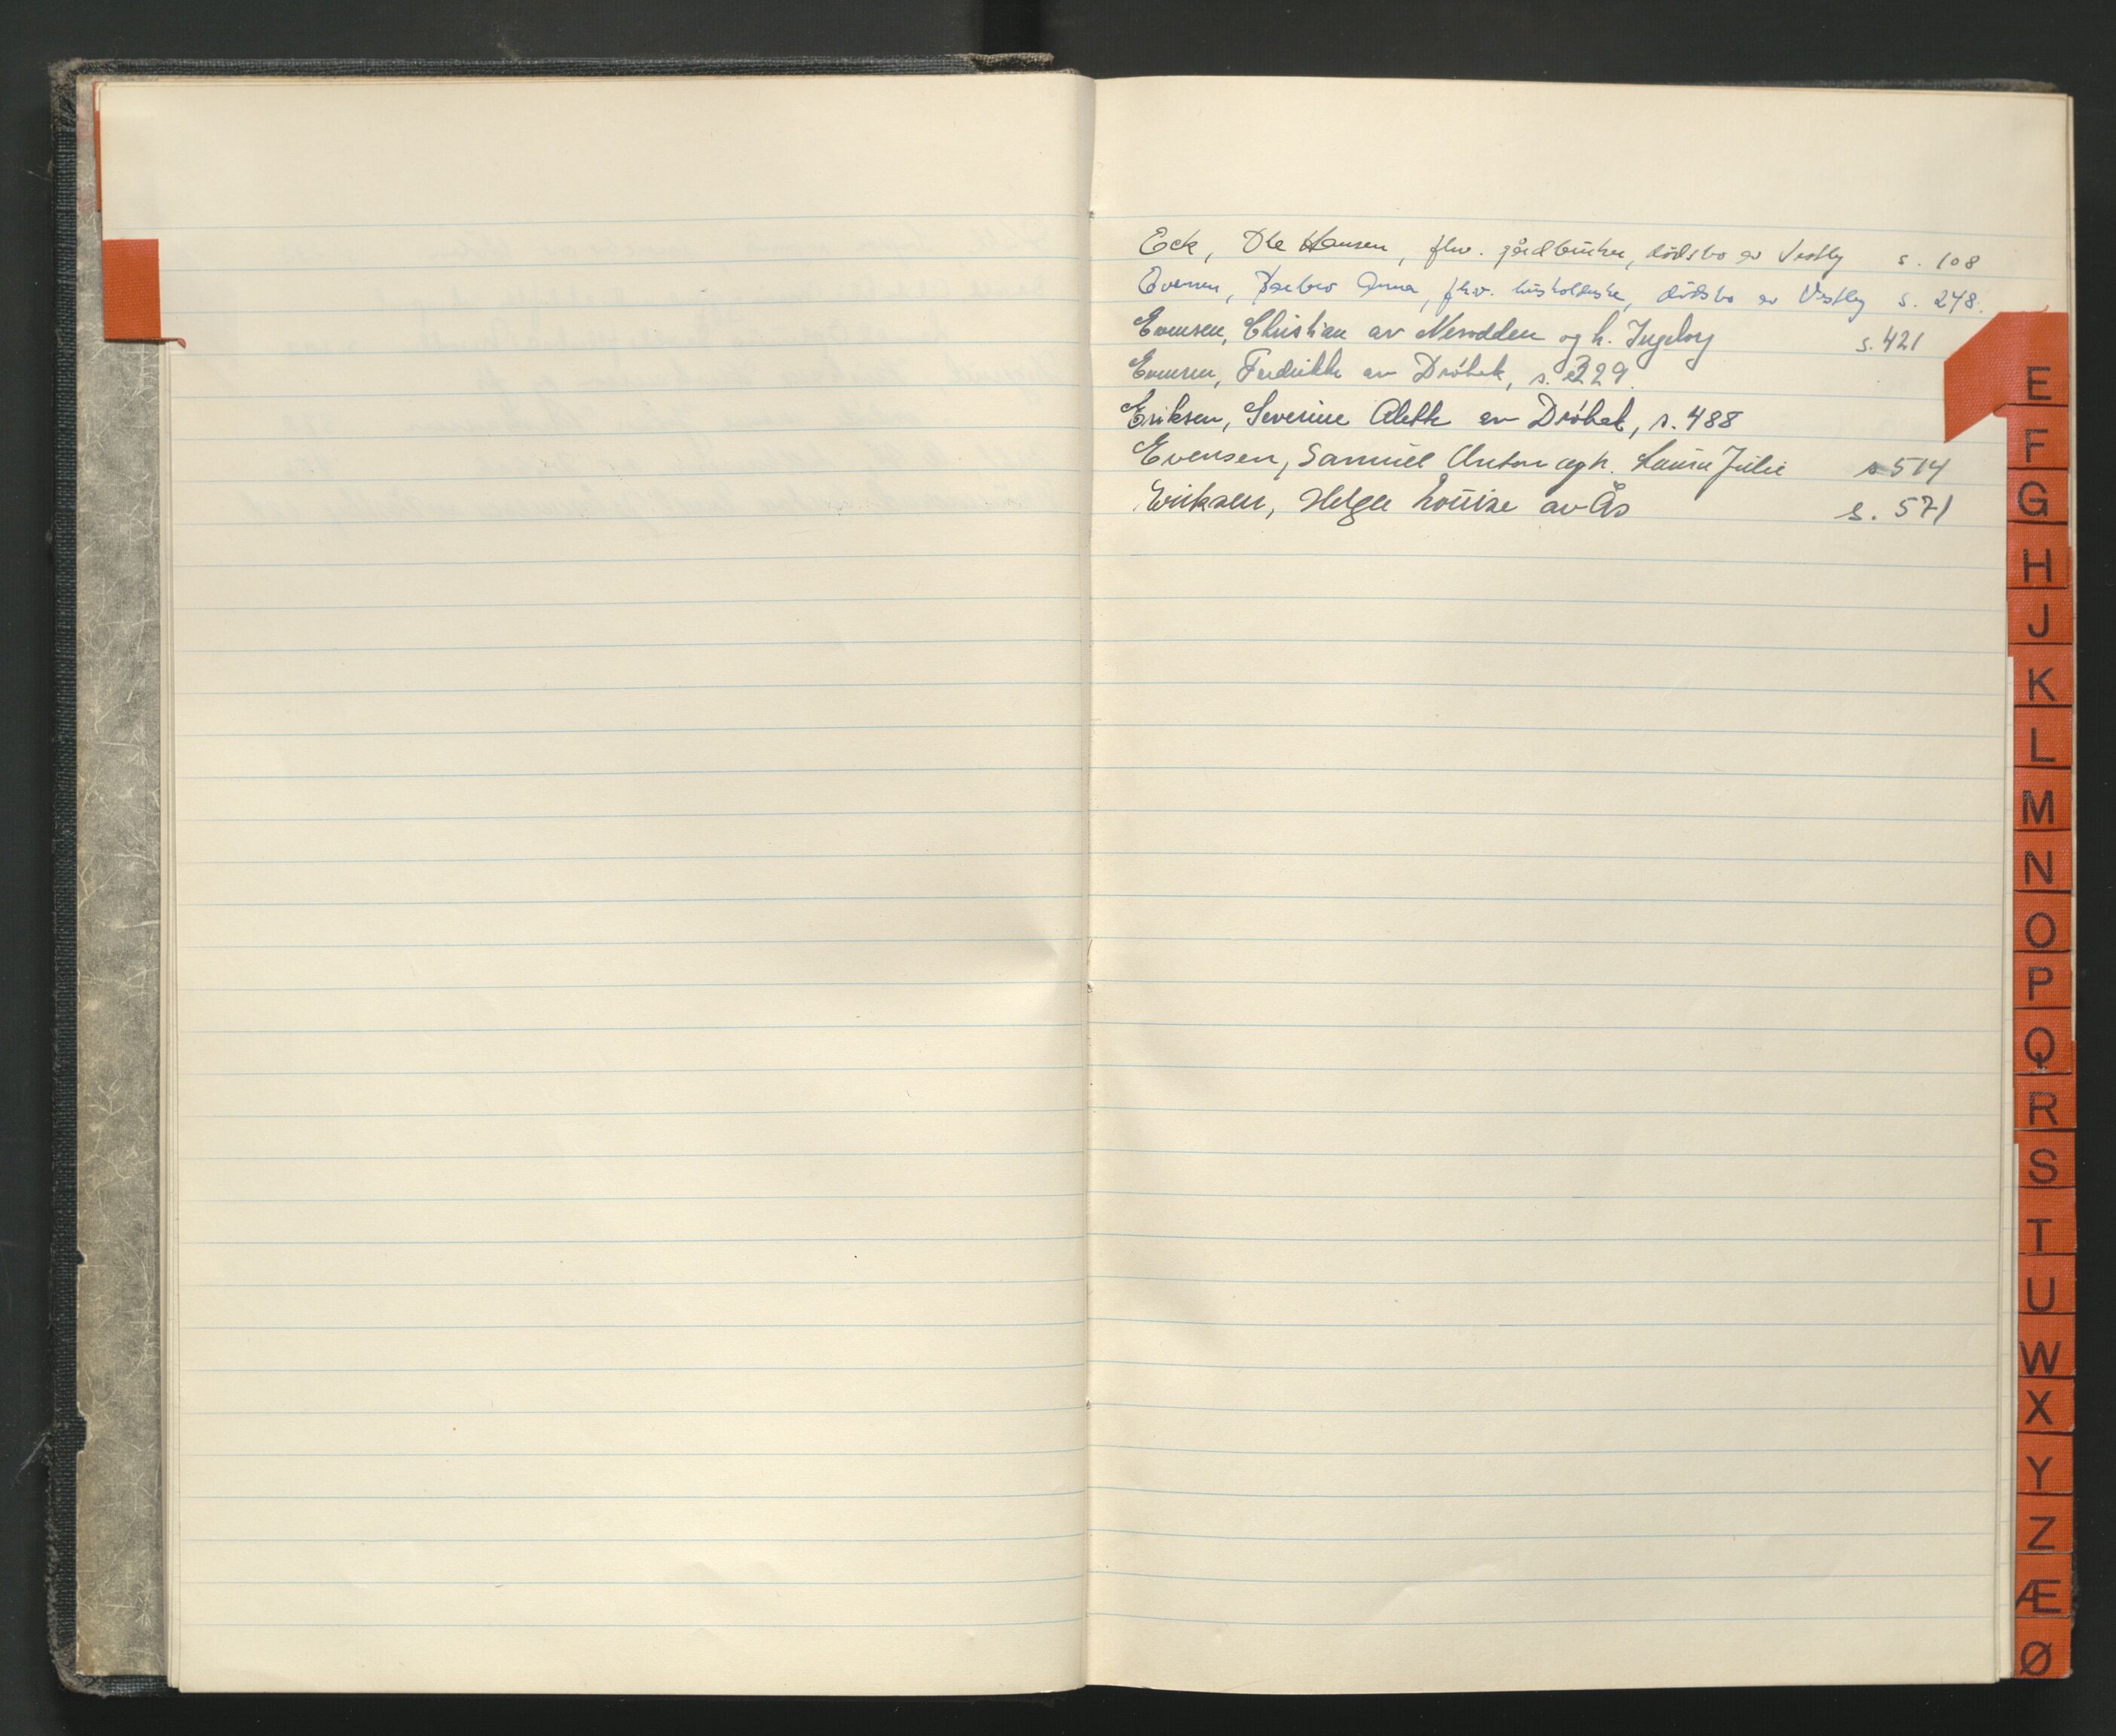 Eck, Ole Hansen, fhv. gårdbruker, dödsbo av Vestby s. 108
Evensen, Anna, fhv. husholderske, dödsbo av Vestby s. 248.
Evensen, Christian av Nesodden og h. Ingeborg s. 421
Evensen, Fredrikke av Dröbak, s. 329.
Eriksen, Severine Alette av Dröbak, s. 488
Evensen, Samuel Anton og h. Laura Julie s 514
Eriksen, Helga Louise av Ås s. 571
E
F
G
H
J
K
L
M
N
O
P
Q
R
S
T
U
W
X
Y
Z
Æ
Ø